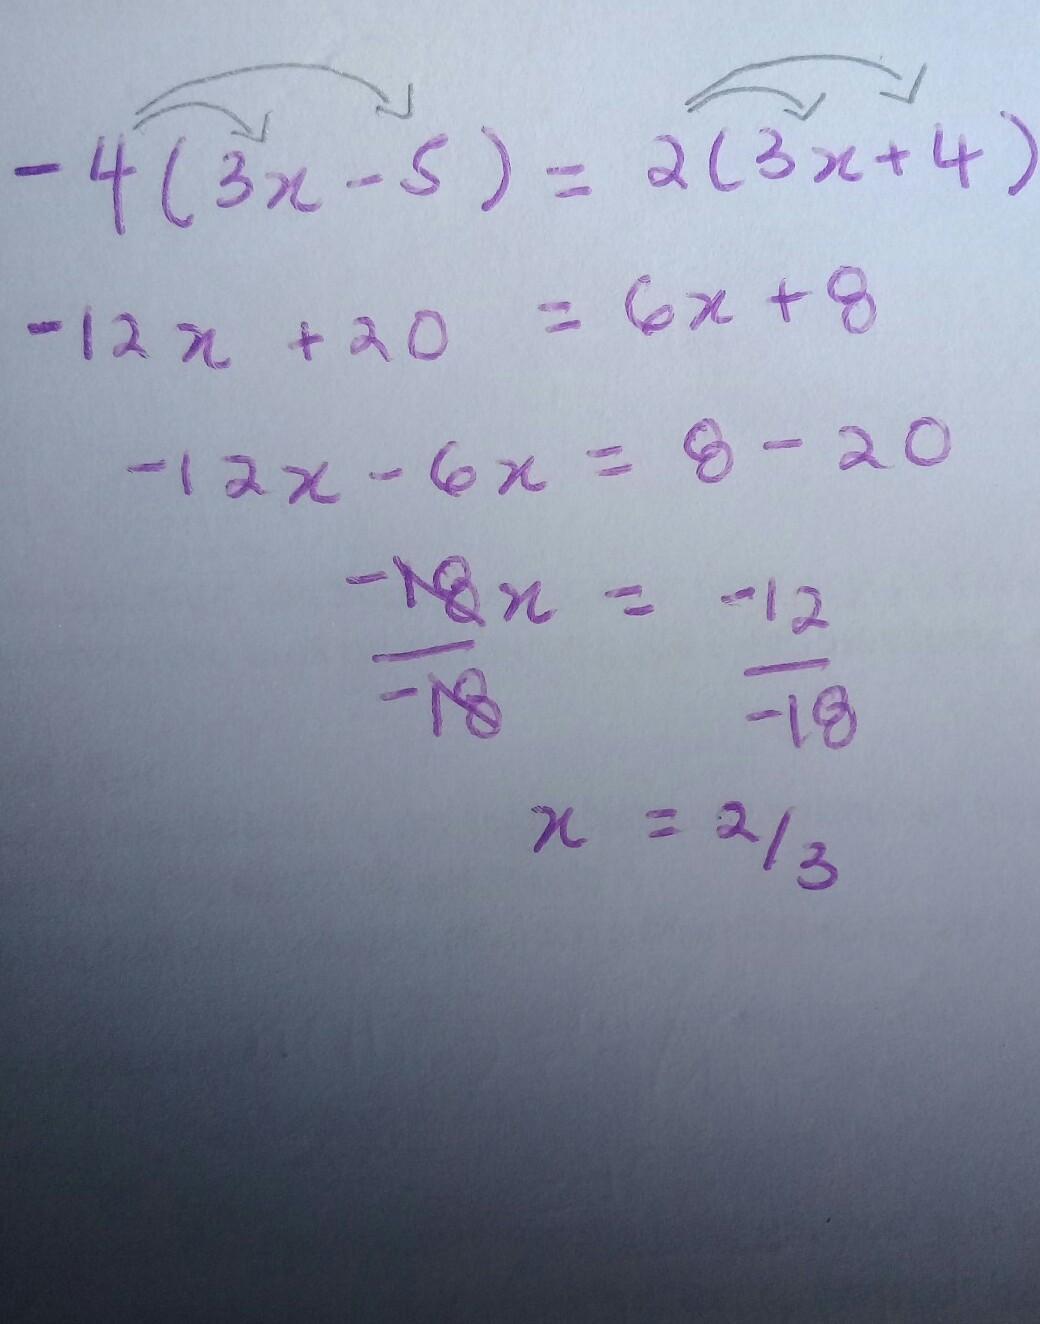 -4(3x-5) = 2(3x+4)
-12x +20 = 6x+8
-12x-6x = 8-20
-18x = -12
-18 -18
x = 2/3